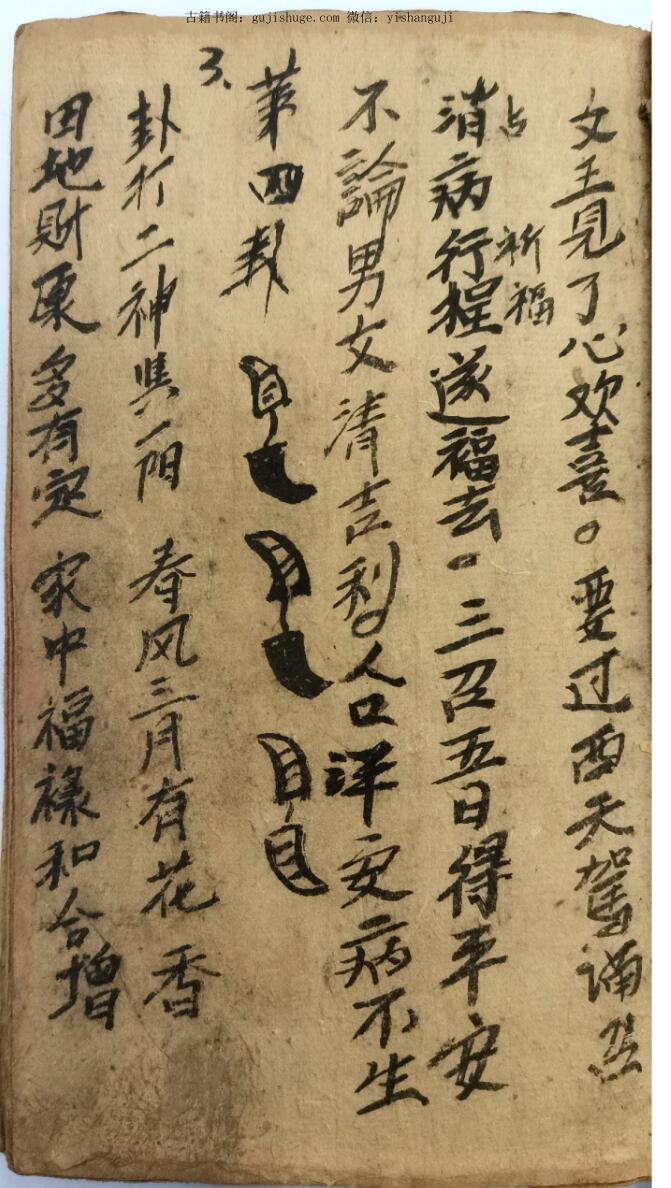 古籍书阁：gujishuge.com 微信：yishanguji
文王見了心欢喜。要过西天駕诵
占 祈福
消病行程遂福去。三召五日得平安
不論男女清吉利。人口洋安病不生
3、
第四卦
卦打二神具一阳 春风三月有花香
田地财原多有定 家中福禄和合增